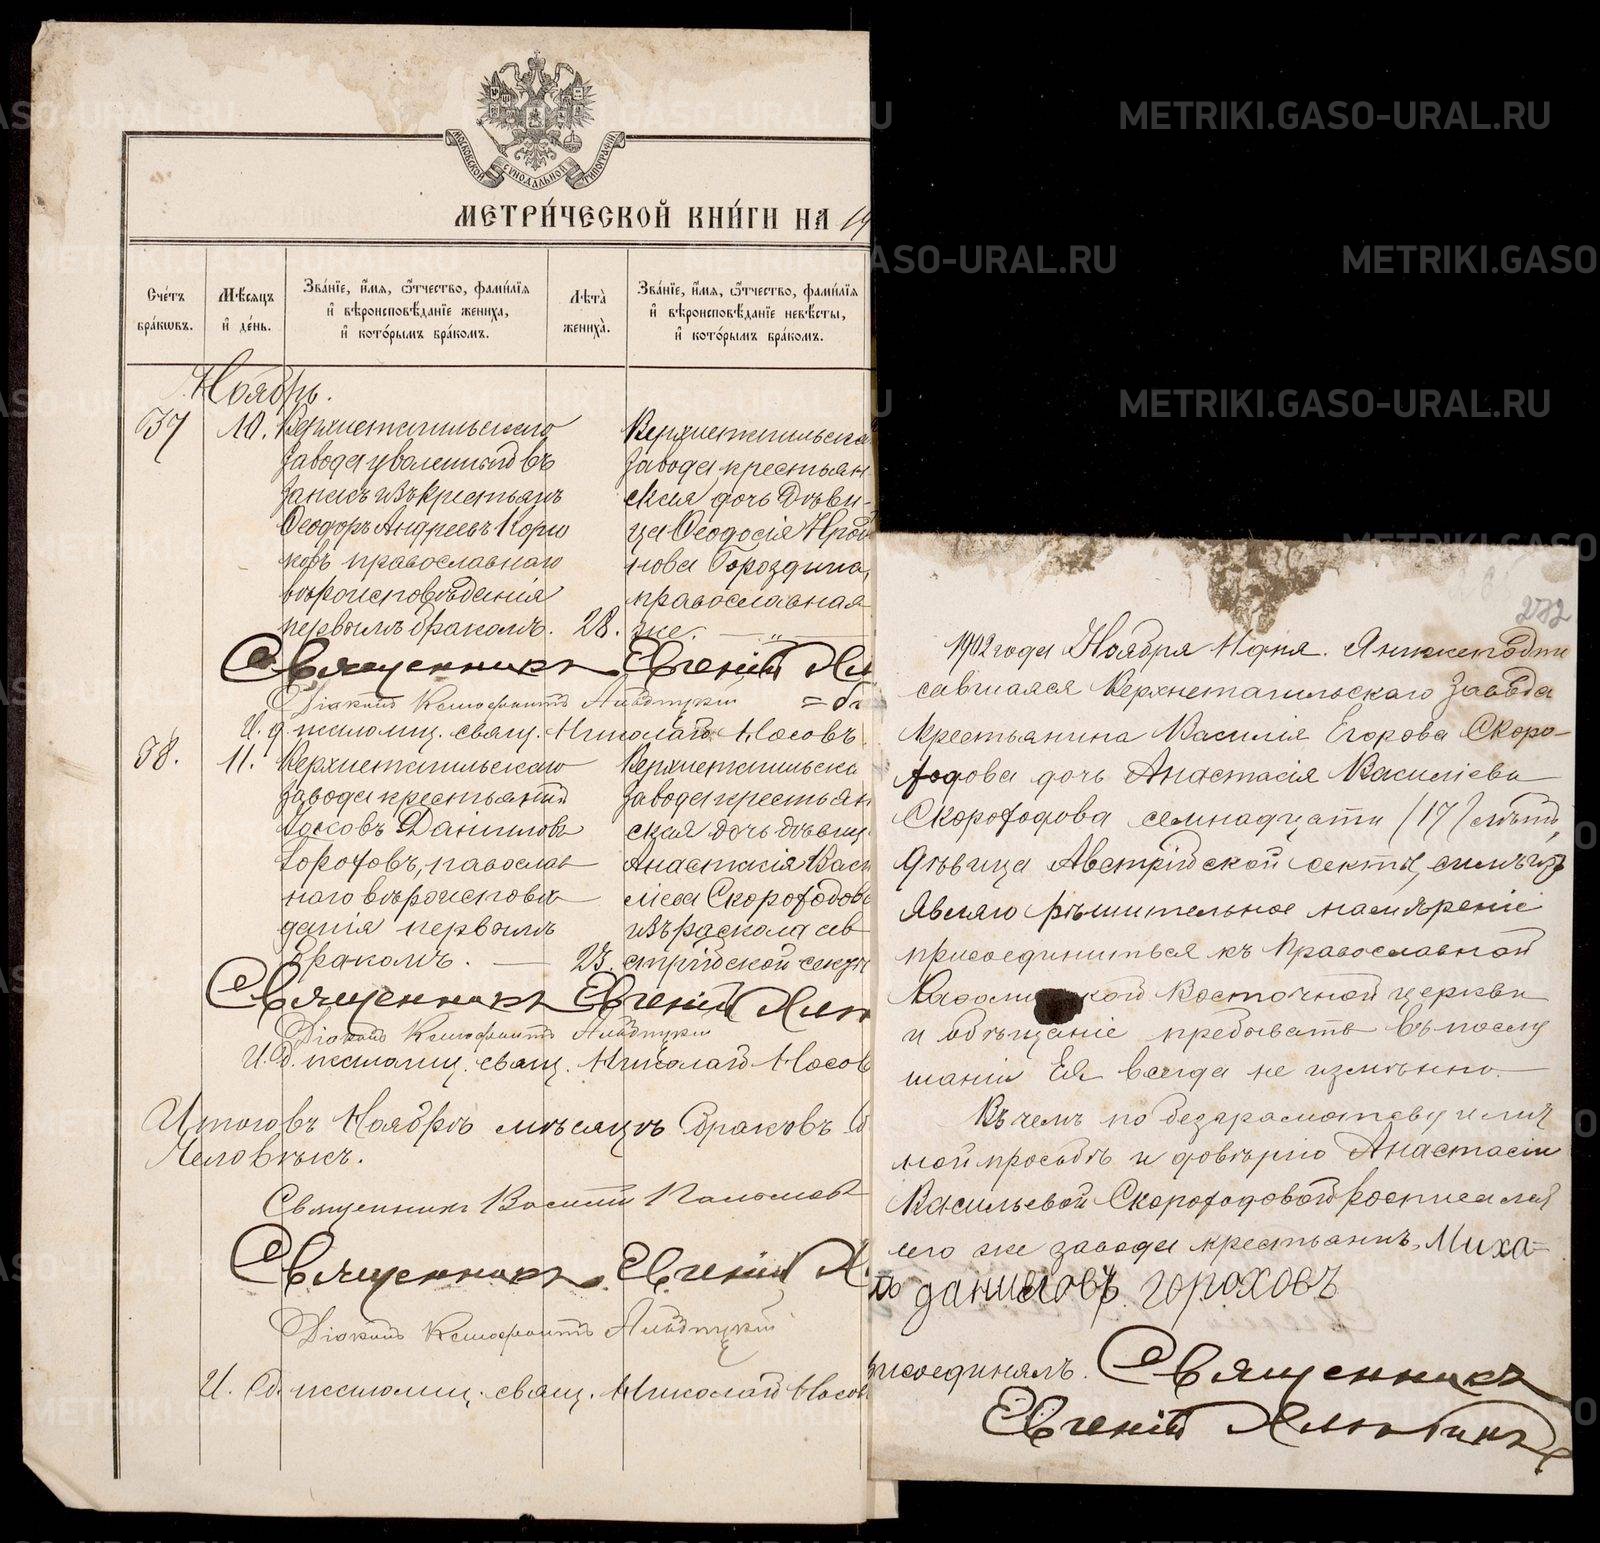 МОСКОВСКОЙ СѴНОДАЛЬНОЙ ТИПОГРАФІИ
МЕТРИ́ЧЕСКОЙ КНИ́ГИ НА 19
Сче́тъ бра́кѡвъ.
Мѣ́сяцъ и҆ де́нь.
Зва́нїе, и҆́мя, ѻ҆́тчество, фами́лїя и҆ вѣроисповѣ́данїе жениха̀, и҆ кото́рымъ бра́комъ.
Лѣта̀ жениха̀.
Зва́нїе, и҆́мя, ѻ҆́тчество, фами́лїя и҆ вѣроисповѣ́данїе невѣ́сты, и҆ кото́рымъ бра́комъ.
Ноябрь.
37 10. Верхнетагильскаго
завода уволенный въ
запасъ изъ крестьянъ
Ѳеодоръ Андреевъ
ковъ православнаго
вѣроисповѣданія
первымъ бракомъ. 28.
Верхнетагильска
завода крестьян
ская дочь дѣви-
ца Ѳеодосія
нова Гороздина,
православная
же.
Священникъ Евгеній Ял
Діаконъ Ксенофонтъ
И. д. псаломщ. свящ. Николай Носовъ.
38. 11. Верхнетагильскаго
завода крестьянинъ
Даніиловъ
Гороховъ, православ
наго вѣроисповѣ
данія первымъ
бракомъ. 23.
Верхнетагильска
завода крестьян
ская дочь дѣвиц
Анастасія Васи
ліева Скороходов
изъ раскола ав
стрійской секты
Священникъ Евгеній Ялю
Діаконъ Ксенофонтъ
И. д. псаломщ. свящ. Николай Носов
Итого въ Ноябрѣ мѣсяцѣ браковъ
Человѣкъ.
Священникъ Василій
Священникъ Евгеній Я
Діаконъ Ксенофонтъ
И. д. псаломщ. свящ. Николай Носов
272
1902 года Ноября 11 дня. Я нижеподпи
савшаяся Верхнетагильскаго завода
крестьянина Василія Егорова Скоро-
ходова дочь Анастасія Василіева
Скороходова семнадцати (17) лѣтъ,
дѣвица Австрійской секты, симъ изъ
являю рѣшительное намѣреніе
присоединиться къ Православной
Каѳоли кой Восточной церкви
и обѣщаніе пребывать въ послу
шаніи Ея всегда не измѣнно.
Въ чемъ по безграмотству и лич
ной просьбѣ и довѣрію Анастасіи
Васильевой Скороходовой росписался
того же завода крестьянинъ, Миха=
лъ даниловъ гороховъ
присоединялъ. Священникъ
Евгеній Ялюбинъ
METRIKI.GASO-URAL.RU